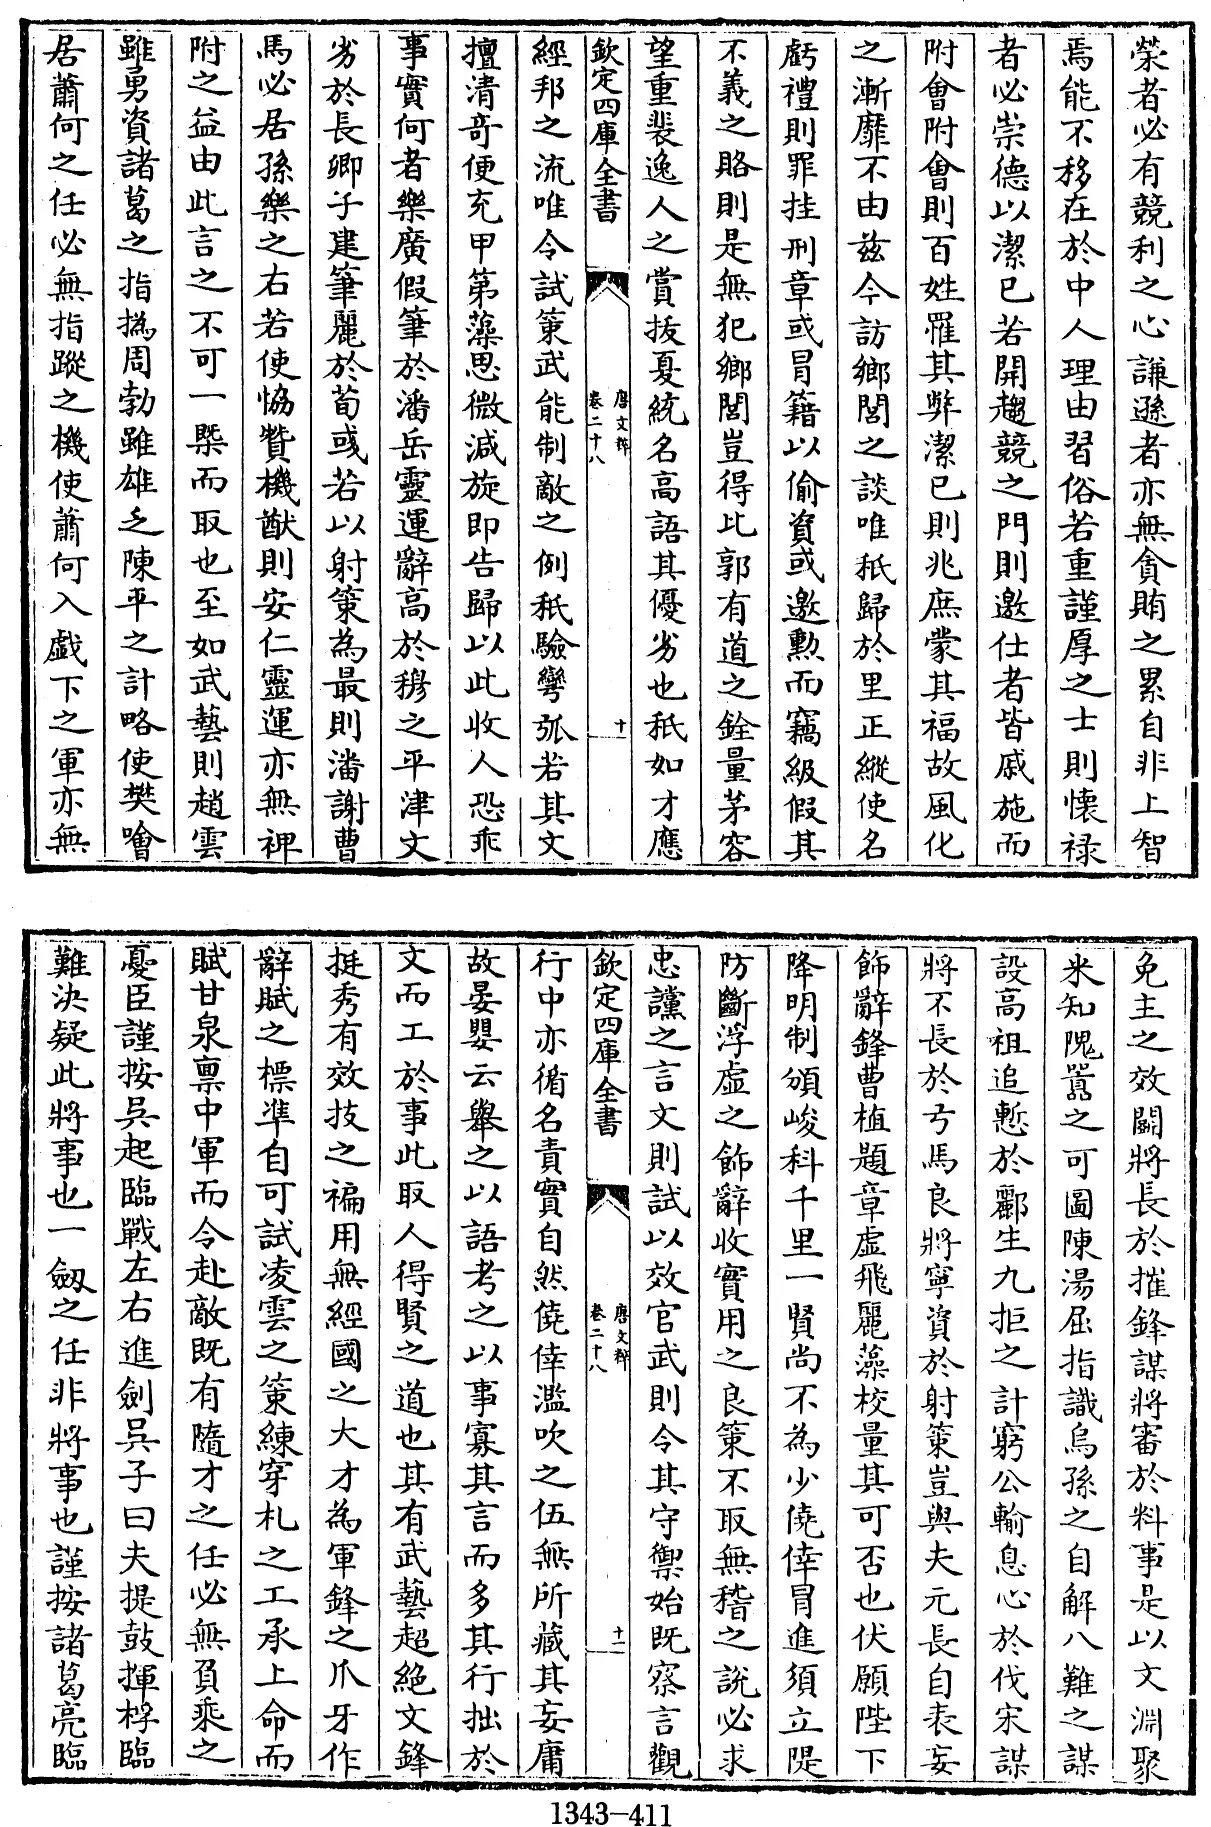 榮者必有競利之心謙遜者亦無貪賄之累自非上智
焉能不移在於中人理由習俗若重謹厚之士則懷祿
者必崇德以潔已若開趨競之門則邀仕者皆戚施而
附會附會則百姓罹其弊潔已則兆庶蒙其福故風化
之漸靡不由茲今訪鄉閭之談唯秖歸於里正縱使名
虧禮則罪挂刑章或冒籍以偷資或邀勲而竊級假其
不義之賂則是無犯鄉閭豈得比郭有道之銓量茅容
望重裴逸人之賞拔夏統名高語其優劣也秖如才應
欽定四庫全書
唐文粹
卷二十八
十
經邦之流唯令試策武能制敵之例秖驗彎弧若其文
擅清奇便充甲第藻思微減旋即告歸以此收人恐乖
事實何者樂廣假筆於潘岳靈運辭高於穆之平津文
劣於長卿子建筆麗於荀彧若以射策為最則潘謝曹
馬必居孫樂之右若使恊贊機猷則安仁靈運亦無裨
附之益由此言之不可一槩而取也至如武藝則趙雲
雖勇資諸葛之指撝周勃雖雄乏陳平之計略使樊噲
居蕭何之任必無指蹤之機使蕭何入戲下之軍亦無
免主之效闘將長於摧鋒謀將審於料事是以文淵聚
米知隗囂之可圖陳湯屈指識烏孫之自解八難之謀
設高祖追慙於酈生九拒之計窮公輸息心於伐宋謀
將不長於弓馬良將寧資於射策豈與夫元長自表妄
飾辭鋒曹植題章虛飛麗藻校量其可否也伏願陛下
降明制頒峻科千里一賢尚不為少僥倖冒進須立隄
防斷浮虛之飾辭收實用之良策不取無稽之說必求
忠讜之言文則試以效官武則令其守禦始既察言觀
欽定四庫全書
唐文粹
卷二十八
十一
行中亦循名責實自然僥倖濫吹之伍無所藏其妄庸
故晏嬰云舉之以語考之以事寡其言而多其行拙於
文而工於事此取人得賢之道也其有武藝超絕文鋒
挺秀有效技之褊用無經國之大才為軍鋒之爪牙作
辭賦之標準自可試凌雲之策練穿札之工承上命而
賦甘泉禀中軍而令赴敵既有隨才之任必無負乘之
憂臣謹按吳起臨戰左右進劍吳子曰夫提鼓揮桴臨
難決疑此將事也一劔之任非將事也謹按諸葛亮臨
1343-411